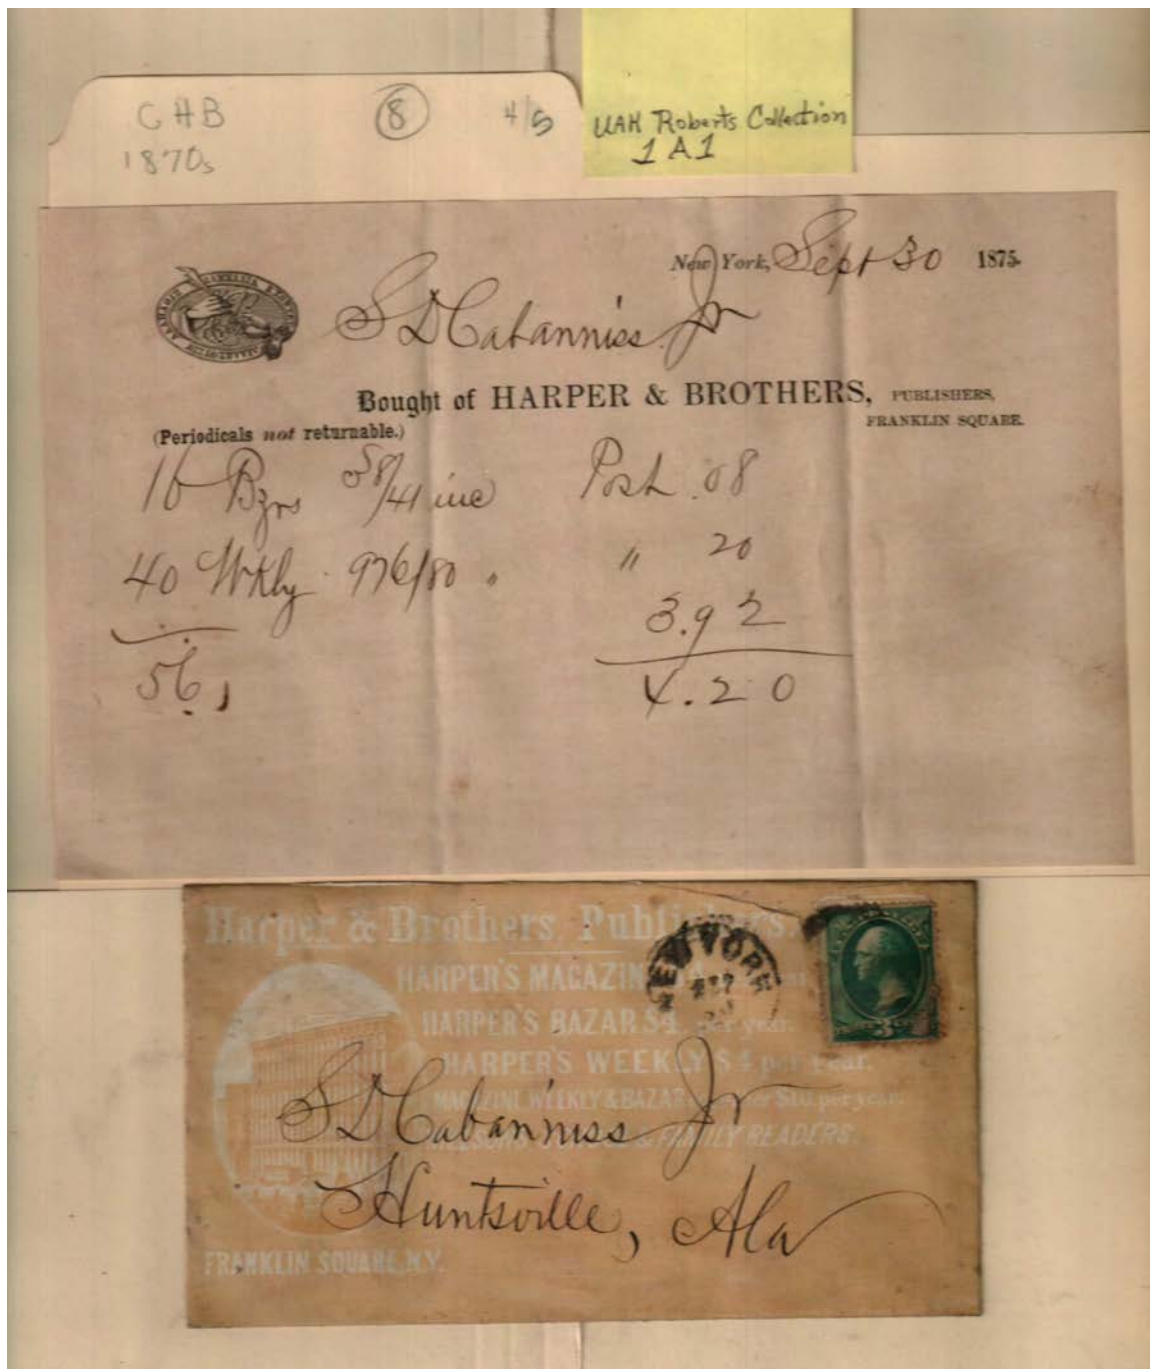 CHB 8 4/5
1870s
UAH Roberts Collection
1A1
New York, Sept 30 1875.
S D Cabanniss Jr
Bought of HARPER & BROTHERS, PUBLISHERS,
(Periodicals not returnable.) FRANKLIN SQUARE.
16 Bzrs 38/41 inc Post .08
40 Wkly 976/80 " " 20
3.92
56, 4.20
Harper & Brothers, Publishers.
NEW YORK
HARPER'S MAGAZINE
HARPER'S BAZAR $4. per year.
HARPER'S WEEKLY $4 per Year.
MAGAZINE, WEEKLY & BAZAR $10. per year.
& FAMILY READERS.
3
S D Cabanniss Jr
Huntsville, Ala
FRANKLIN SQUARE, N.Y.